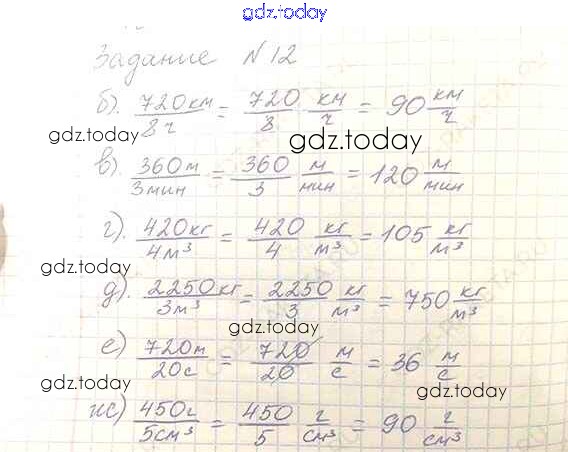 gdz.today
Задание №12
б). 720км/8ч = 720/8 км/ч = 90 км/ч
gdz.today gdz.today
в). 360м/3мин = 360/3 м/мин = 120 м/мин
г). 420кг/4м³ = 420/4 кг/м³ = 105 кг/м³
gdz.today
д). 2250кг/3м³ = 2250/3 кг/м³ = 750 кг/м³
gdz.today
е) 720м/20с = 720/20 м/с = 36 м/с
gdz.today gdz.today
ж) 450г/5см³ = 450/5 г/см³ = 90 г/см³